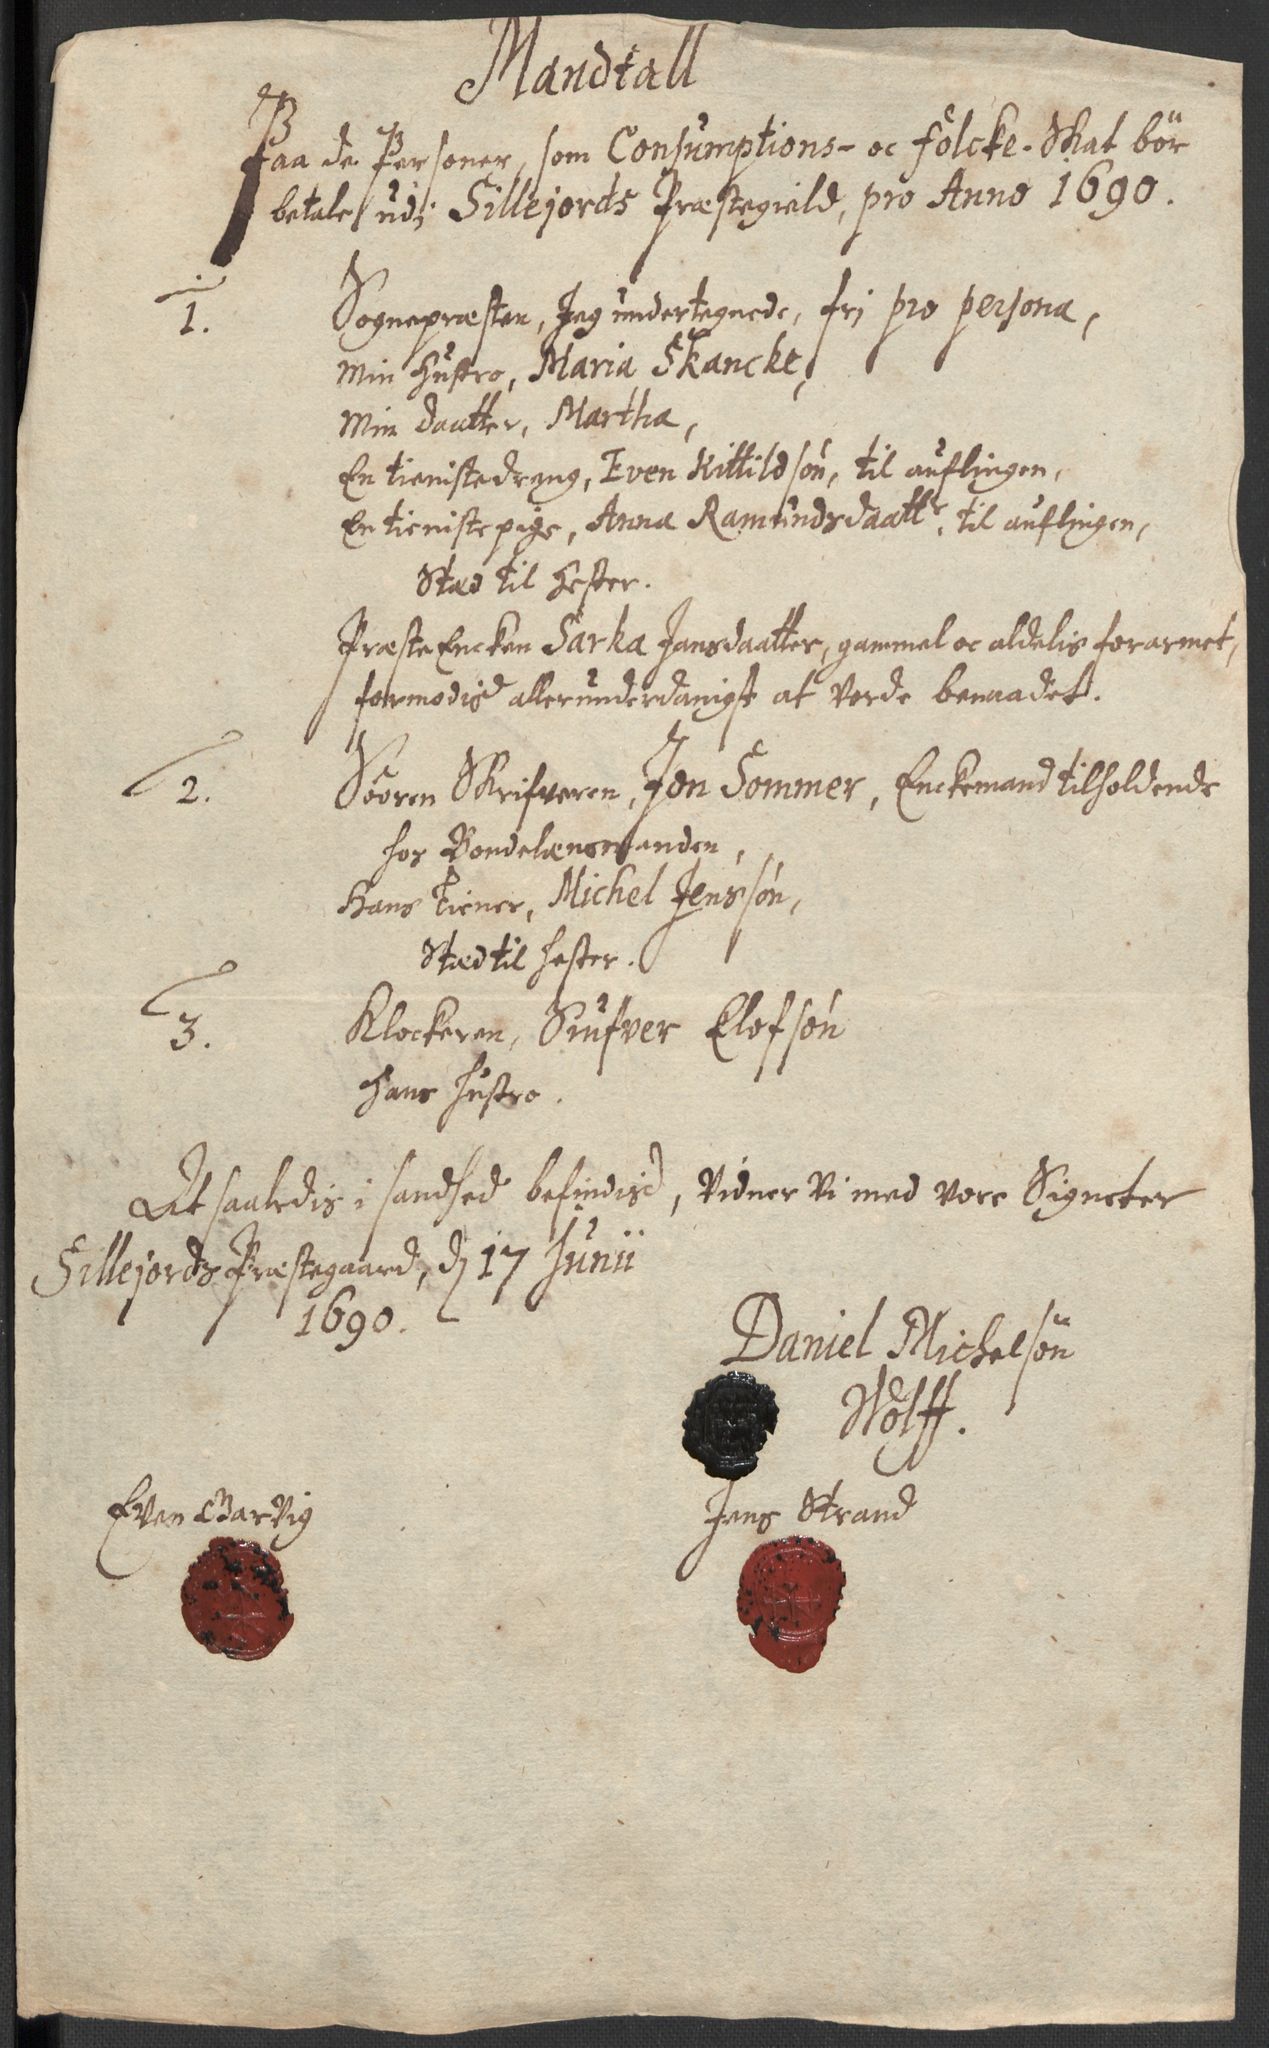 Mandtall
Paa de Personer, som Consumptions- oc folcke-Skat bör
betale udj Sillejords Præstegield, pro Anno 1690.
1. Sognepræsten, Jeg undertegnede, frj pro persona,
Min Hustro, Maria Skancke,
Min Daatter, Martha,
En tienistedreng, Even Kittildsøn, til auflingen,
En tienistepige, Anna Ramundsdaattr, til auflingen,
Stæd til Hester.
PræsteEncken Sarka Jansdaatter, gammel oc aldelis forarmet,
formodis allerunderdanigst at vorde benaadet.
2. Sooren Skrifveren, Jon Sommer, Enckemand tilholdende
hos Bondelænsmanden,
Hans Tiener, Michel Jenssøn,
Stæd til hester.
3. Klockeren, Siufver Elofsøn
Hans Hustro.
At saaledis i sandhed befindis, Vidner Vi med vore Signeter
Sillejords Præstegaard, dj 17 Junii
1690.
Daniel Michelsön
Wolff.
Even Barvig
Jens Strand